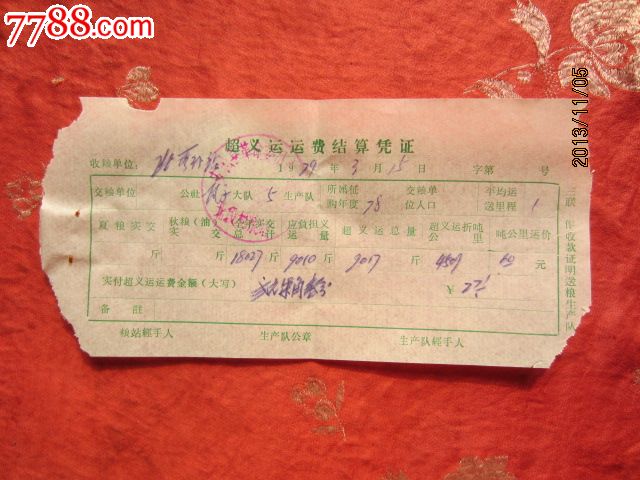 7788.com
中国收藏热线
2013/11/05
超义运运费结算凭证
收粮单位: 1979年3月15日 字第 号
交粮单位 公社 大队 5 生产队 所属征购年度 78 交粮单位人口 平均运送里程 1
夏粮实交 秋粮(油)实交 全年实交总计 应负担义运量 超义运总量 超义运折吨公里 吨公里运价
斤 斤 18027斤 9010斤 9017斤 4509 60元
实付超义运运费金额(大写) ¥ 271
备注
粮站经手人 生产队公章 生产队经手人
三联 作收款证明送粮生产队